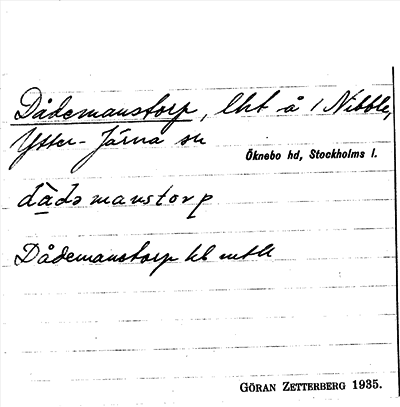 Dådemanstorp, lht å 1 Nibble,
Ytter-Järna sn
Öknebo hd, Stockholms l.
dådəmanstorp
Dådemanstorp hb mtll
GÖRAN ZETTERBERG 1935.